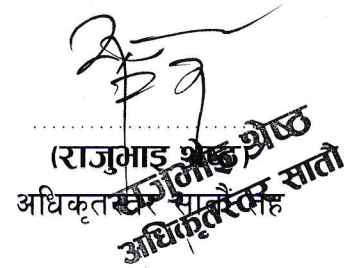 (राजुभाइ श्रेष्ठ)
अधिकृतस्तर सातौं तह
राजुभाइ श्रेष्ठ
अधिकृतस्तर सातौ